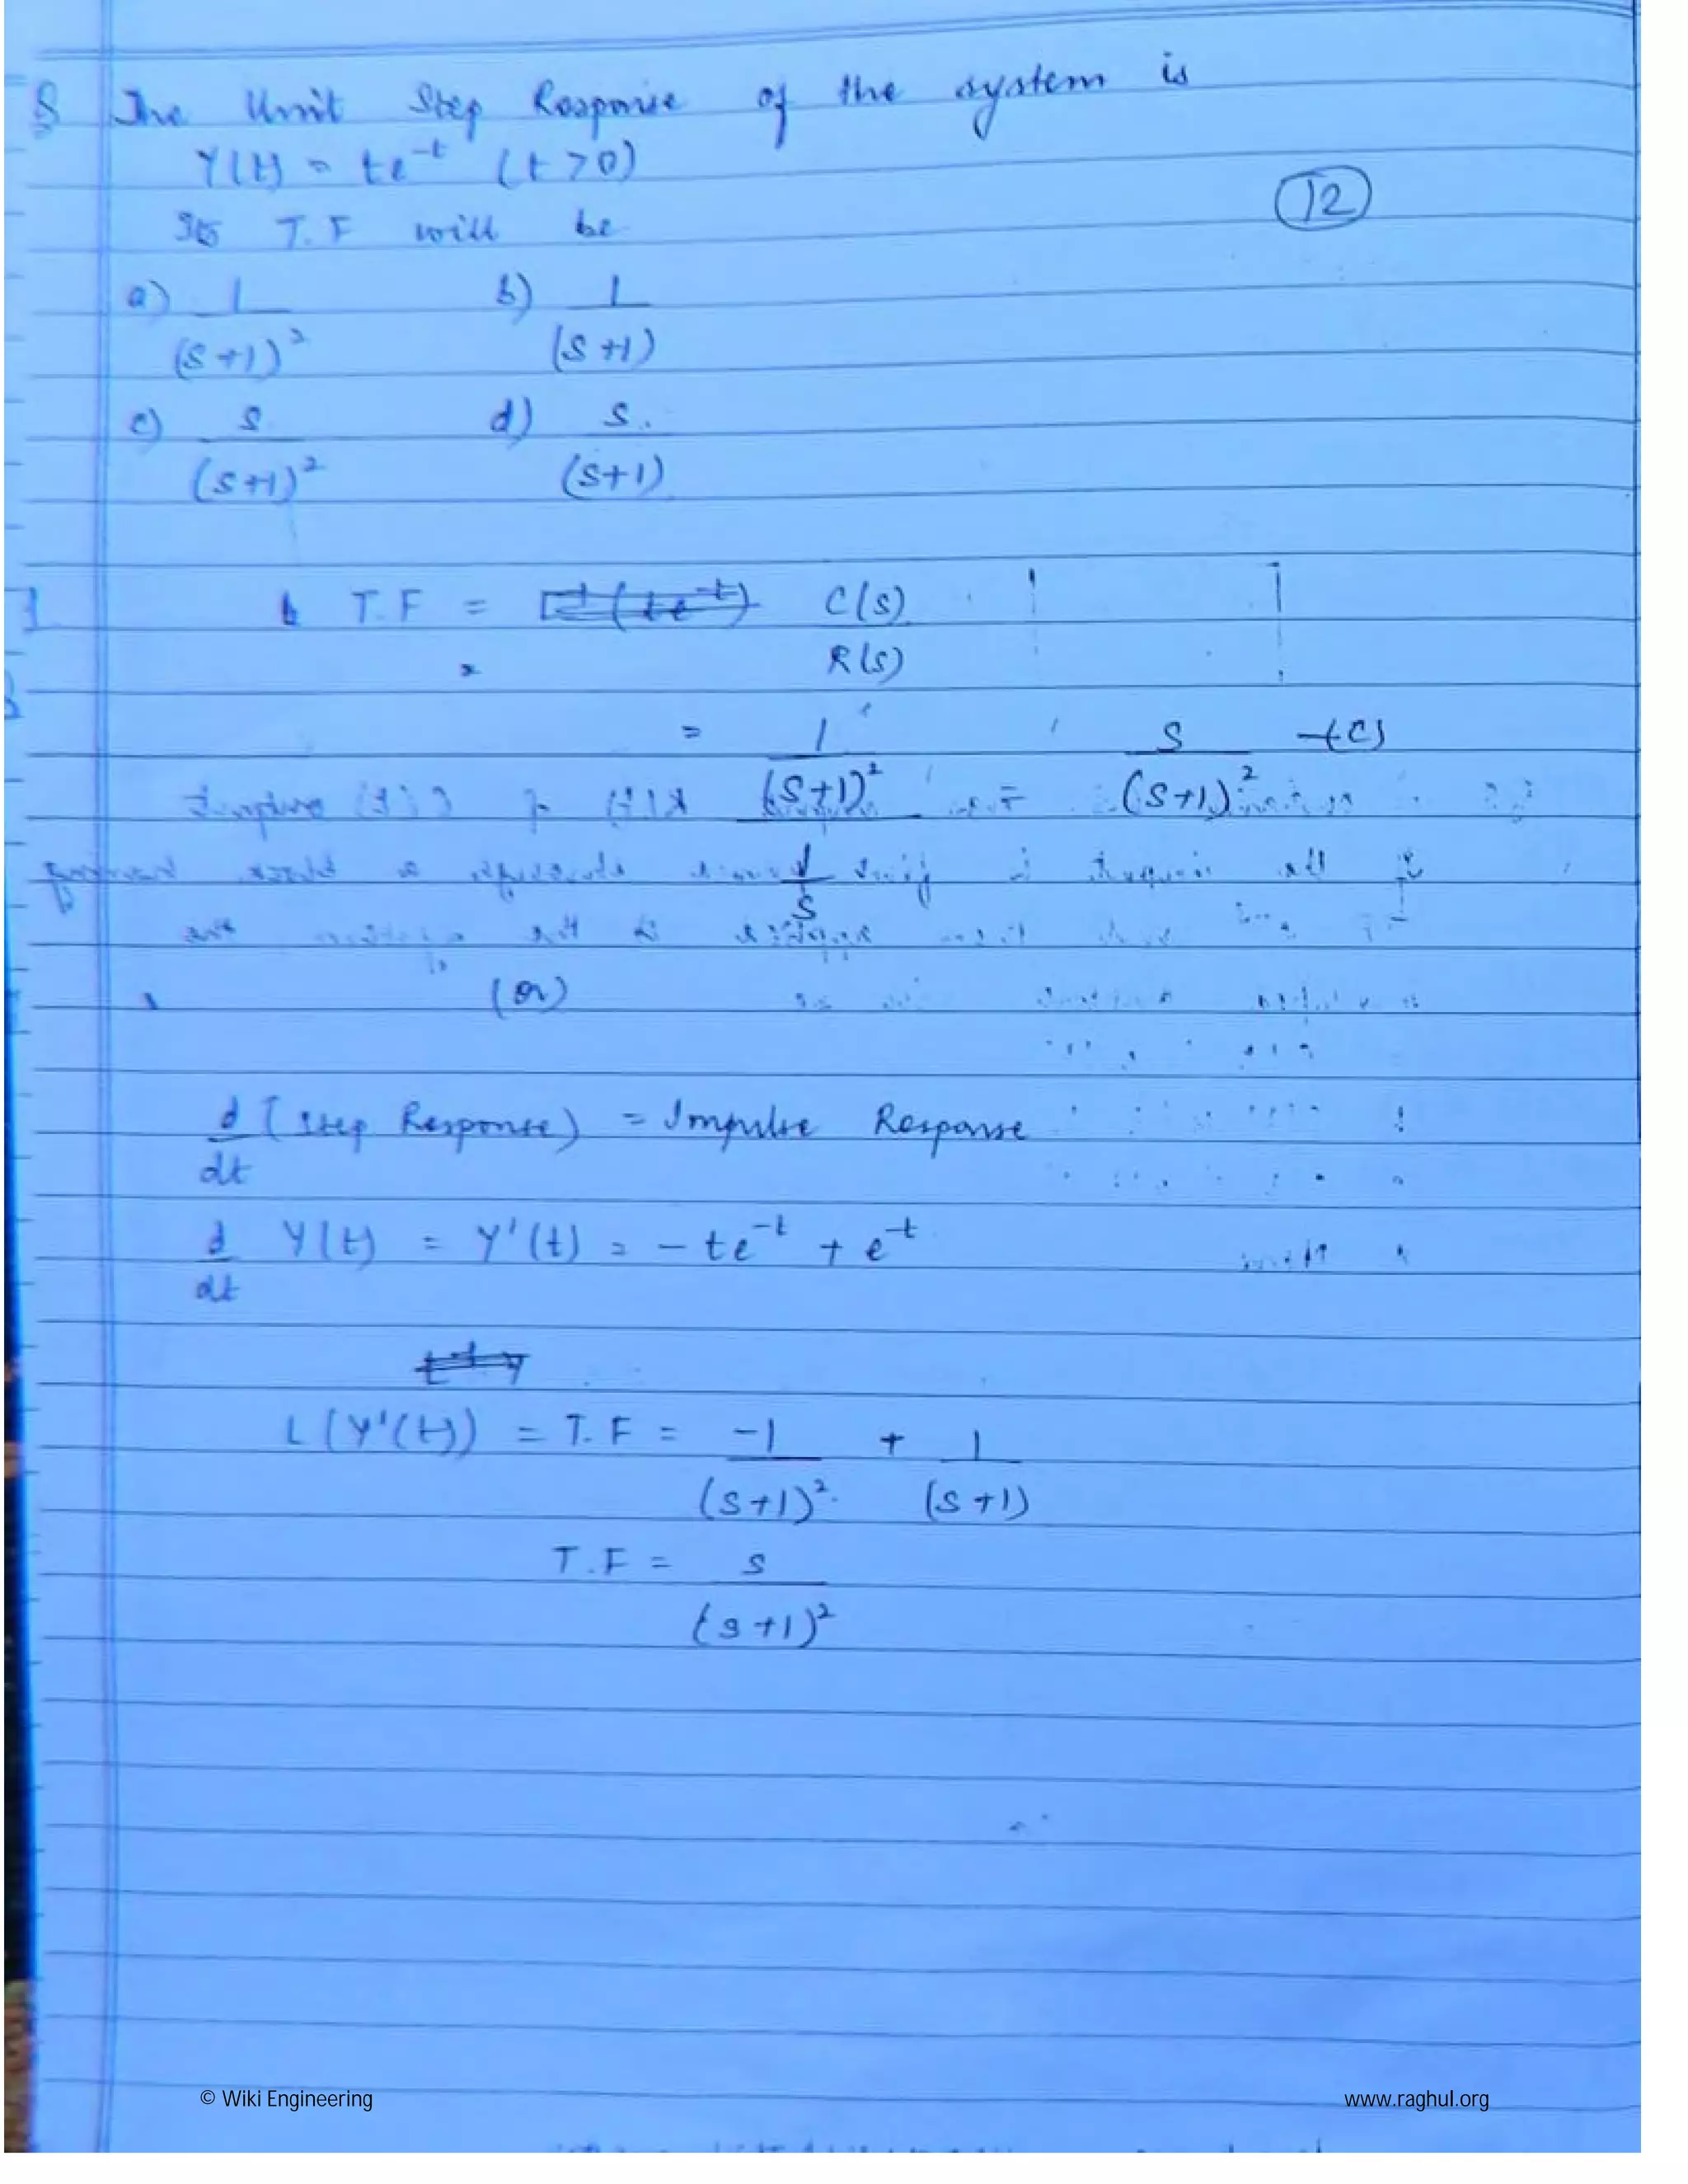 Q The Unit Step Response of the system is
Y(t) = te^-t (t>0)
Its T.F will be
12
a) 1/(S+1)^2 b) 1/(S+1)
c) S/(S+1)^2 d) S/(S+1)
T.F = C(s)/R(s)
= 1/(S+1)^2 / 1/S = S/(S+1)^2 -(C)
(or)
d/dt (Step Response) = Impulse Response
d/dt Y(t) = Y'(t) = -te^-t + e^-t
L(Y'(t)) = T.F = -1/(S+1)^2 + 1/(S+1)
T.F = S/(S+1)^2
© Wiki Engineering www.raghul.org